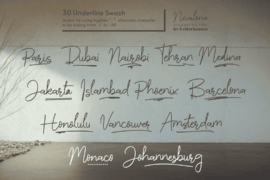 30 Underline Swash
Paris Dubai Nairobi Tehran Medina
Jakarta Islambad Phoenix Barcelona
Honolulu Vancouver Amsterdam
Monaco Johannesburg